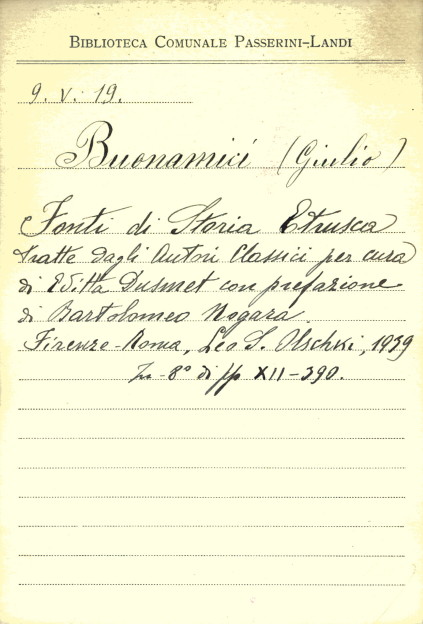 BIBLIOTECA COMUNALE PASSERINI-LANDI
9. V. 19.
Buonamici (Giulio)
Fonti di Storia Etrusca
tratte dagli Autori Classici per cura
di Editta Dusmet con prefazione
di Bartolomeo Nogara.
Firenze-Roma, Leo S. Olschki, 1939
In-8° di pp XII-390.